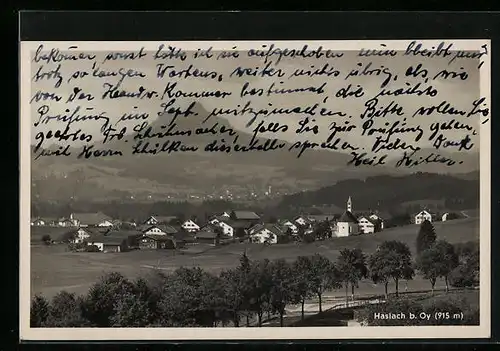 bekomen, sonst hätte ich sie aufgeschoben. Nun bleibt mir
trotz so langen Wartens, weiter nichts übrig, als, wie
von der Handw. Kammer bestimmt, die nächste
Prüfung im Sept. mitzumachen. Bitte wollen Sie
geehrtes Frl.
falls Sie zur Prüfung gehen,
mit Herrn
sprechen. Vielen Dank
Heil Hitler.
Haslach b. Oy (915 m)